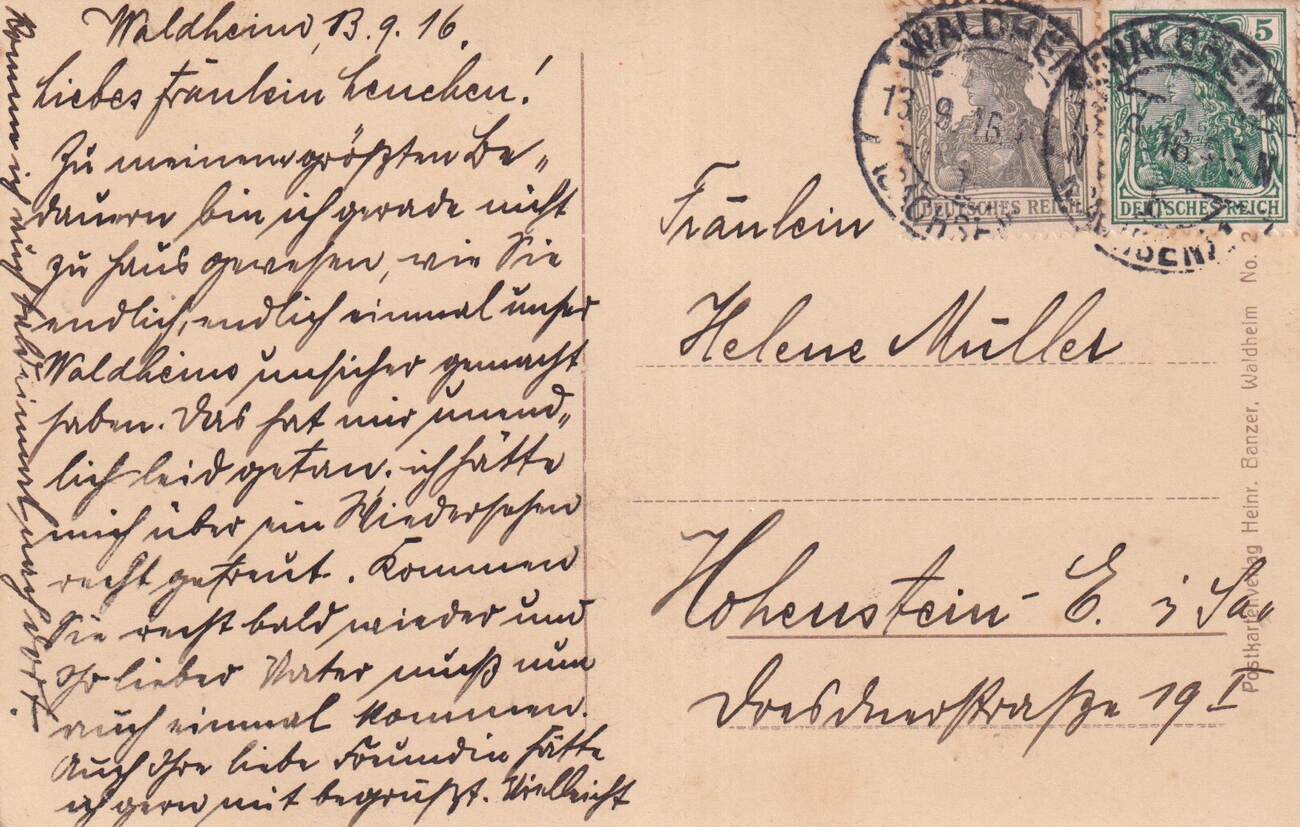 Waldheim, 13.9.16.
Liebes Fräulein Lenchen!
Zu meinem größten Be-
dauern bin ich gerade nicht
zu Haus gewesen, wie Sie
endlich, endlich einmal unser
Waldheim unsicher gemacht
haben. Das hat mir unend-
lich leid getan, ich hätte
mich über ein Wiedersehen
recht gefreut. Kommen
Sie recht bald wieder und
Ihr lieber Vater muß nun
auch einmal kommen.
Auch Ihre liebe Freundin hätte
ich gern mit begrüßt. Vielleicht
komme ich auch bald einmal nach dort.
WALDHEIM
13 9 16
(SACHSEN)
DEUTSCHES REICH
WALDHEIM
9 16
(SACHSEN)
5
DEUTSCHES REICH
Fräulein
Helene Müller
Hohenstein-E. i Sa.
Dresdnerstraße 19 I
Postkartenverlag Heinr. Banzer, Waldheim No. 2